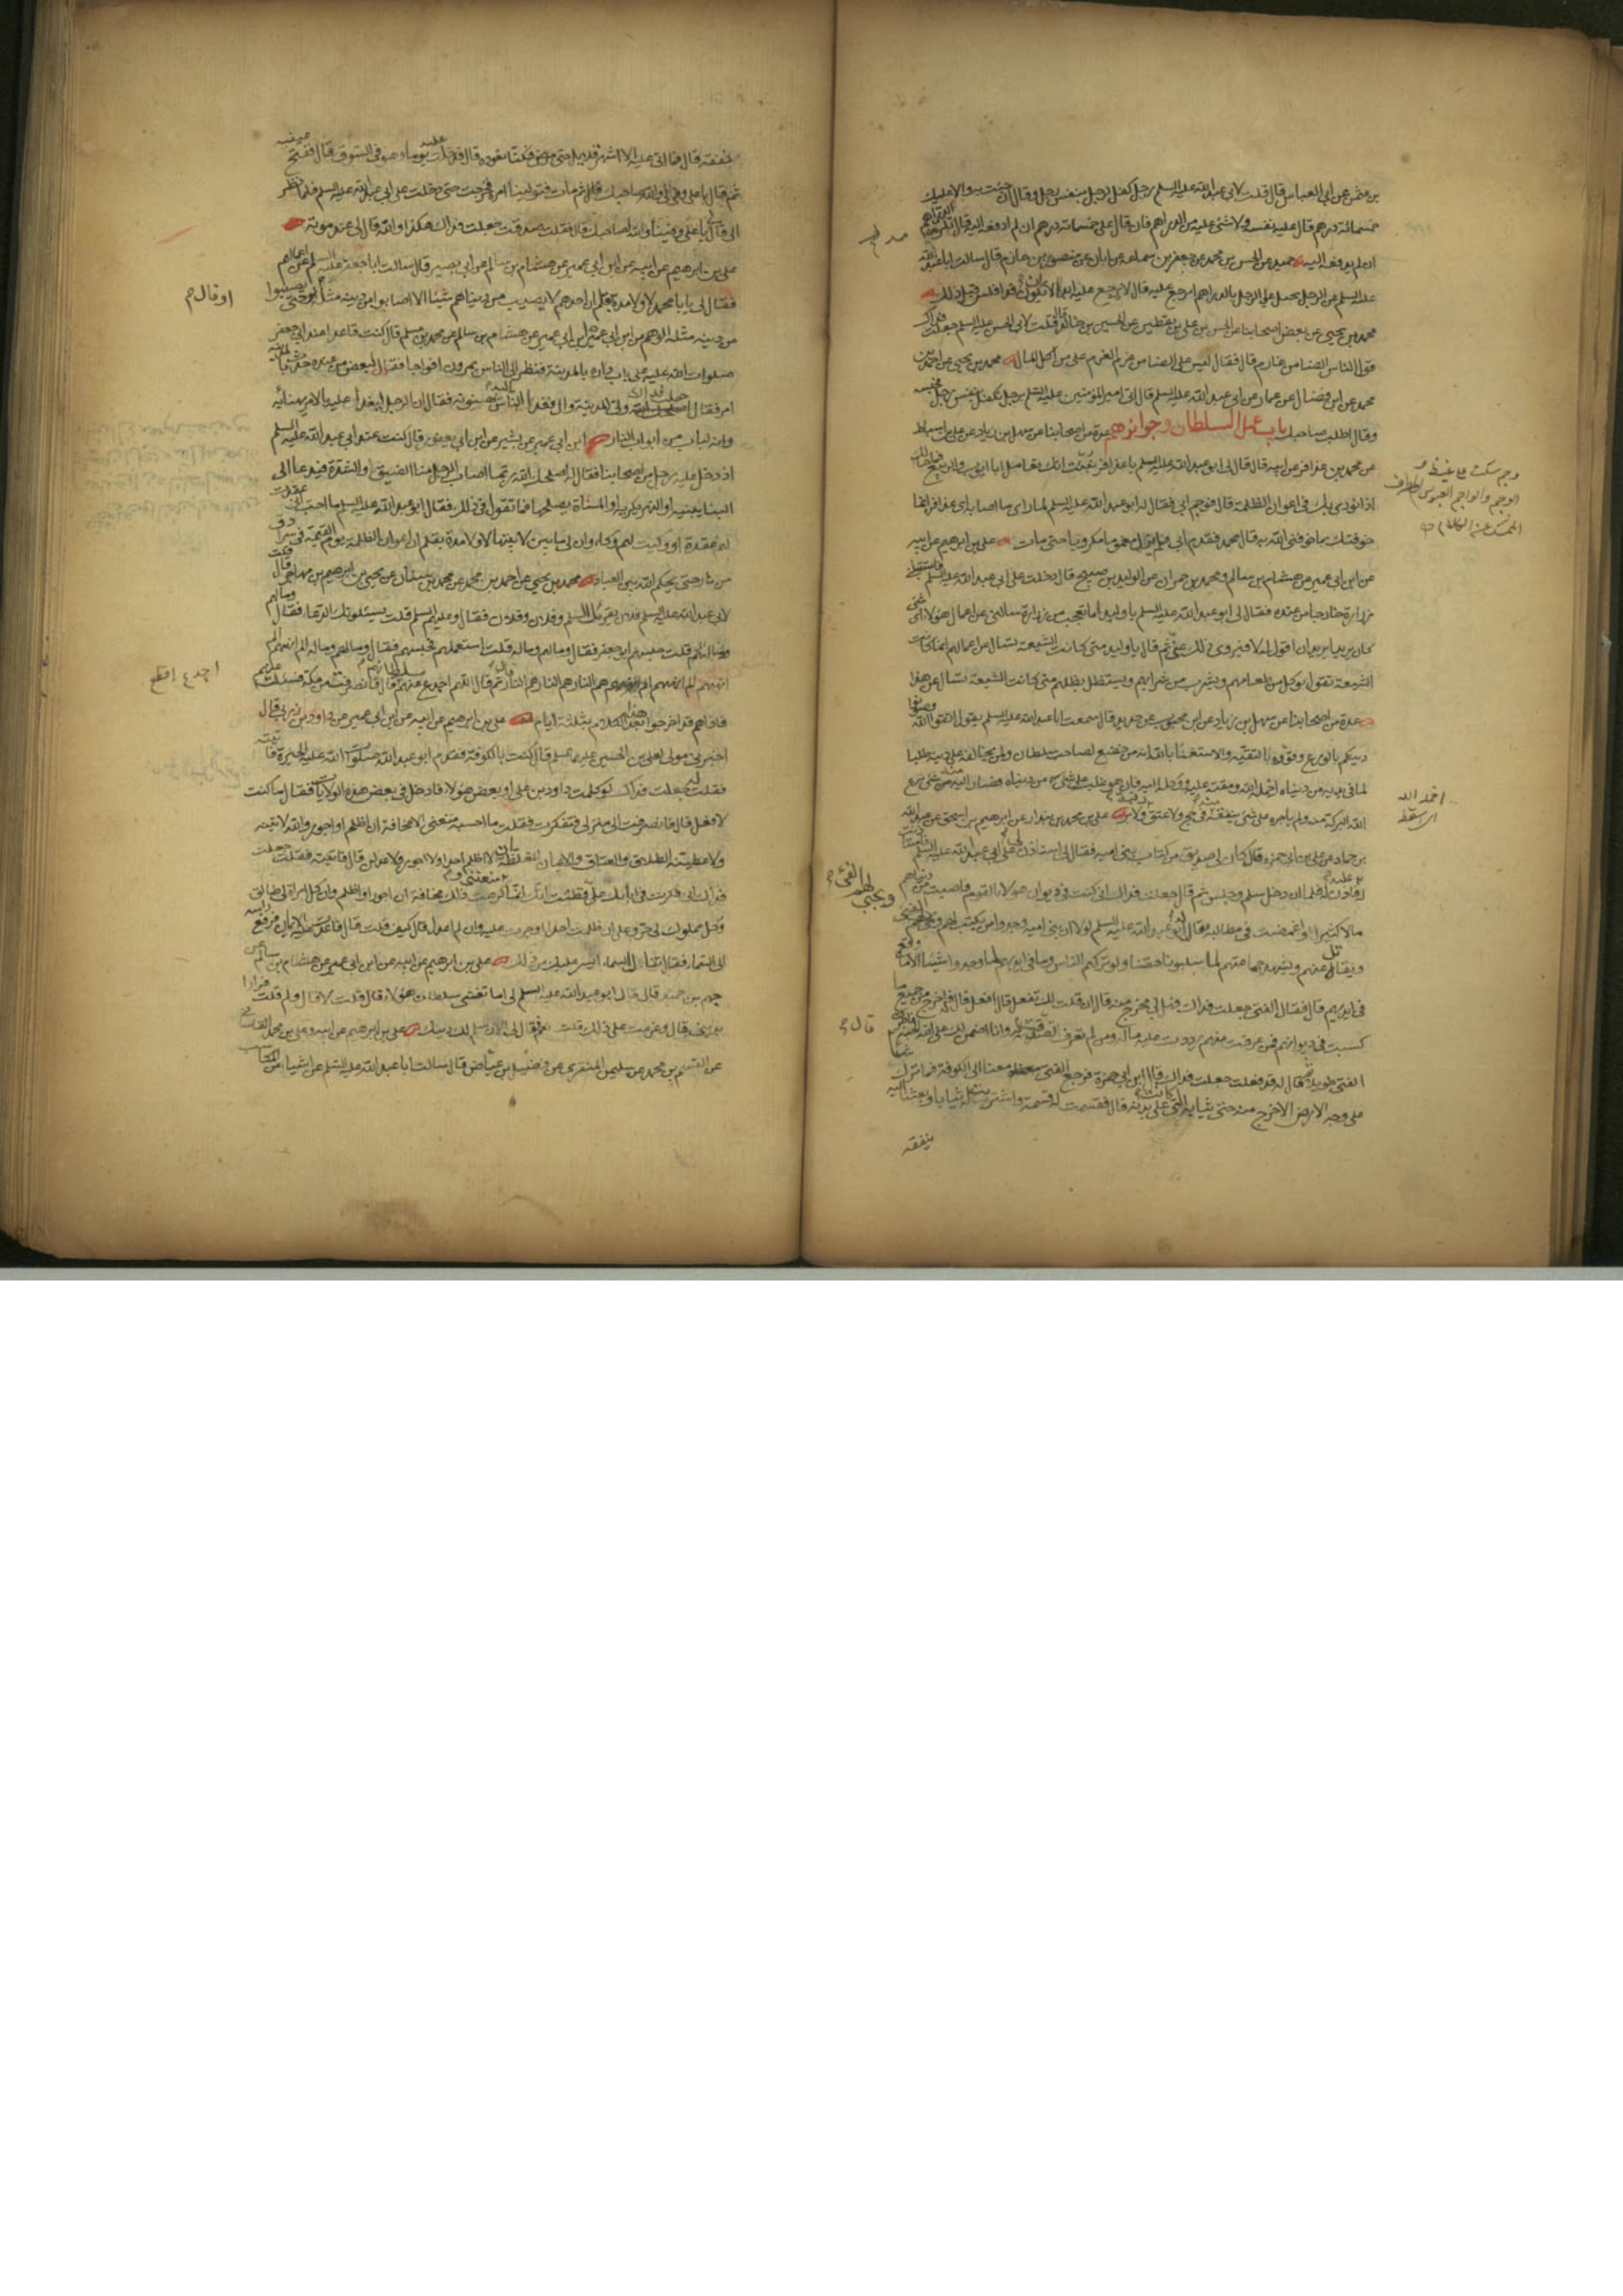 بن عثمن عن ابي العباس قال قلت لابي عبد الله عليه السلم رجل كفل لرجل بنفس رجل وقال ان جئت به والا عليك
خمسمائة درهم قال عليه نفسه ولا شئ عليه من الدراهم فان قال علي خمسمائة درهم ان لم ادفعه اليه قال تلزمه الدراهم
ان لم يدفعه اليه حميد عن الحسن بن محمد عن جعفر بن سماعة عن ابان عن منصور بن حازم قال سالت ابا عبد الله
عليه السلم عن الرجل يحيل على الرجل بالدراهم ايرجع عليه قال لا يرجع عليه ابدا الا ان يكون قد افلس قبل ذلك
محمد بن يحيى عن بعض اصحابنا عن الحسن بن علي بن يقطين عن الحسين بن خالد قال قلت لابي الحسن عليه السلم جعلت فداك
قول الناس الضامن غارم قال فقال ليس على الضامن غرم الغرم على من اكل المال محمد بن يحيى عن احمد بن
محمد عن ابن فضال عن عمار عن ابي عبد الله عليه السلم قال اتي امير المؤمنين عليه السلم برجل تكفل بنفس رجل فحبسه
وقال اطلب صاحبك باب عمل السلطان وجوائزهم عدة من اصحابنا عن سهل بن زياد عن علي بن اسباط
عن محمد بن عذافر عن ابيه قال قال لي ابو عبد الله عليه السلم يا عذافر نبئت انك تعامل ابا ايوب والربيع فما حالك
اذا نودي بك في اعوان الظلمة قال فوجم ابي فقال له ابو عبد الله عليه السلم لما راى ما اصابه اي عذافر انما
خوفتك بما خوفني الله به قال محمد فقدم ابي فما زال مغموما مكروبا حتى مات علي بن ابراهيم عن ابيه
عن ابن ابي عمير عن هشام بن سالم ومحمد بن حمران عن الوليد بن صبيح قال دخلت على ابي عبد الله عليه السلم فاستقبلني
زرارة خارجا من عنده فقال لي ابو عبد الله عليه السلم يا وليد اما تعجب من زرارة سالني عن اعمال هؤلاء اي شئ
كان يريد ايريد ان اقول له لا فيروي ذلك عني ثم قال يا وليد متى كانت الشيعة تسال عن اعمالهم انما كانت
الشيعة تقول يؤكل من طعامهم ويشرب من شرابهم ويستظل بظلهم متى كانت الشيعة تسال عن هذا
عدة من اصحابنا عن سهل بن زياد عن ابن محبوب عن حديد قال سمعت ابا عبد الله عليه السلم يقول اتقوا الله وصونوا
دينكم بالورع وقووه بالتقية والاستغناء بالله انه من خضع لصاحب سلطان ولمن يخالفه على دينه طلبا
لما في يديه من دنياه اخمله الله ومقته عليه ووكله اليه فان هو غلب على شئ من دنياه فصار اليه منه شئ نزع
الله البركة منه ولم ياجره على شئ ينفقه في حج ولا عتق ولا بر علي بن محمد بن بندار عن ابراهيم بن اسحق عن عبد الله
بن حماد عن علي بن ابي حمزة قال كان لي صديق من كتاب بني امية فقال لي استاذن لي على ابي عبد الله عليه السلم فاستاذنت
له عليه فاذن له فلما ان دخل سلم وجلس ثم قال جعلت فداك اني كنت في ديوان هؤلاء القوم فاصبت من دنياهم
مالا كثيرا واغمضت في مطالبه فقال ابو عبد الله عليه السلم لولا ان بني امية وجدوا من يكتب لهم ويجبي لهم الفئ
ويقاتل عنهم ويشهد جماعتهم لما سلبونا حقنا ولو تركهم الناس وما في ايديهم لما وجدوا شيئا الا ما وقع
في ايديهم قال فقال الفتى جعلت فداك فهل لي مخرج منه قال ان قلت لك تفعل قال افعل قال فاخرج من جميع ما
كسبت في ديوانهم فمن عرفت منهم رددت عليه ماله ومن لم تعرف تصدقت به وانا اضمن لك على الله الجنة فاطرق
الفتى طويلا ثم قال له قد فعلت جعلت فداك قال ابن ابي حمزة فرجع الفتى معنا الى الكوفة فما ترك شيئا
على وجه الارض الا خرج منه حتى ثيابه التي كانت على بدنه قال فقسمت له قسمة واشترينا له ثيابا وبعثنا اليه
بنفقة
وجم سكت على غيظ و
الوجم والواجم العبوس المطرق
الممسك عن الكلام
اخمله الله
اي اسقطه
ويجبي لهم الفئ
قال
بنفقة قال فما اتى عليه الا اشهر قلايل حتى مرض فكنا نعوده قال فدخلت عليه يوما وهو في السوق قال ففتح عينيه
ثم قال يا علي وفى لي والله صاحبك قال ثم مات فتولينا امره فخرجت حتى دخلت على ابي عبد الله عليه السلم فلما نظر
الي قال يا علي وفينا والله لصاحبك قال فقلت صدقت جعلت فداك هكذا والله قال لي عند موته
علي بن ابراهيم عن ابيه عن ابن ابي عمير عن هشام بن سالم عن ابي بصير قال سالت ابا جعفر عليه السلم عن اعمالهم
فقال لي يا با محمد لا ولا مدة بقلم ان احدهم لا يصيب من دنياهم شيئا الا اصابوا من دينه مثله او حتى يصيبوا
من دينه مثله الوهم من ابن ابي عمير ابن ابي عمير عن هشام بن سالم عن محمد بن مسلم قال كنت قاعدا عند ابي جعفر
صلوات الله عليه على باب داره بالمدينة فنظر الى الناس يمرون افواجا فقال لبعض من عنده حدث بالمدينة
امر فقال جعلت فداك ولي المدينة وال فغدا الناس اليه يهنئونه فقال ان الرجل ليغدا عليه بالامر يهنا به
وانه لباب من ابواب النار ابن ابي عمير عن بشير عن ابن ابي يعفور قال كنت عند ابي عبد الله عليه السلم
اذ دخل عليه رجل من اصحابنا فقال له اصلحك الله ربما اصاب الرجل منا الضيق او الشدة فيدعا الى
البناء يبنيه او النهر يكريه او المسناة يصلحها فما تقول في ذلك فقال ابو عبد الله عليه السلم ما احب اني عقدت
لهم عقدة او وكيت لهم وكاء وان لي ما بين لابتيها لا ولا مدة بقلم ان اعوان الظلمة يوم القيمة في سرادق
من نار حتى يحكم الله بين العباد محمد بن يحيى عن احمد بن محمد عن محمد بن سنان عن يحيى بن ابراهيم بن مهاجر قال قلت
لابي عبد الله عليه السلم فلان يقرئك السلم وفلان وفلان فقال وعليهم السلم قلت يسئلونك الدعاء فقال وما لهم
قلت حبسهم ابو جعفر فقال وما لهم وما له قلت استعملهم فحبسهم فقال وما لهم وما له الم انههم الم
انههم الم انههم هم النار هم النار هم النار ثم قال اللهم اجدع عنهم سلطانهم قال فانصرفت من مكة فسالت عنهم
فاذا هم قد اخرجوا بعد هذا الكلام بثلثة ايام علي بن ابراهيم عن ابيه عن ابن ابي عمير عن داود بن زربي قال
اخبرني مولى لعلي بن الحسين عليهما السلم قال كنت بالكوفة فقدم ابو عبد الله صلوات الله عليه الحيرة فاتيته
فقلت له جعلت فداك لو كلمت داود بن علي او بعض هؤلاء فادخل في بعض هذه الولايات فقال ما كنت
لافعل قال فانصرفت الى منزلي فتفكرت فقلت ما احسبه منعني الا مخافة ان اظلم او اجور والله لاتينه
ولاعطينه الطلاق والعتاق والايمان المغلظة ان لا اظلم احدا ولا اجور ولاعدلن قال فاتيته فقلت جعلت
فداك اني فكرت في ابائك علي فظننت انك انما كرهت ذلك مخافة ان اجور او اظلم وان كل امراة لي طالق
وكل مملوك لي حر وعلي ان ظلمت احدا او جرت عليه وان لم اعدل قال كيف قلت قال فاعدت عليه الايمان فرفع راسه
الى السماء فقال تناول السماء ايسر عليك من ذلك علي بن ابراهيم عن ابيه عن ابن ابي عمير عن هشام بن سالم عن
جهم بن حميد قال قال ابو عبد الله عليه السلم لي اما تغشى سلطان هؤلاء قال قلت لا قال ولم قلت فرارا
بديني قال وعزمت على ذلك قلت نعم قال لي الان سلم لك دينك علي بن ابراهيم عن ابيه وعلي بن محمد القاساني
عن القسم بن محمد عن سليمن المنقري عن فضيل بن عياض قال سالت ابا عبد الله عليه السلم عن اشياء من المكاسب
او قال
اجدع اقطع